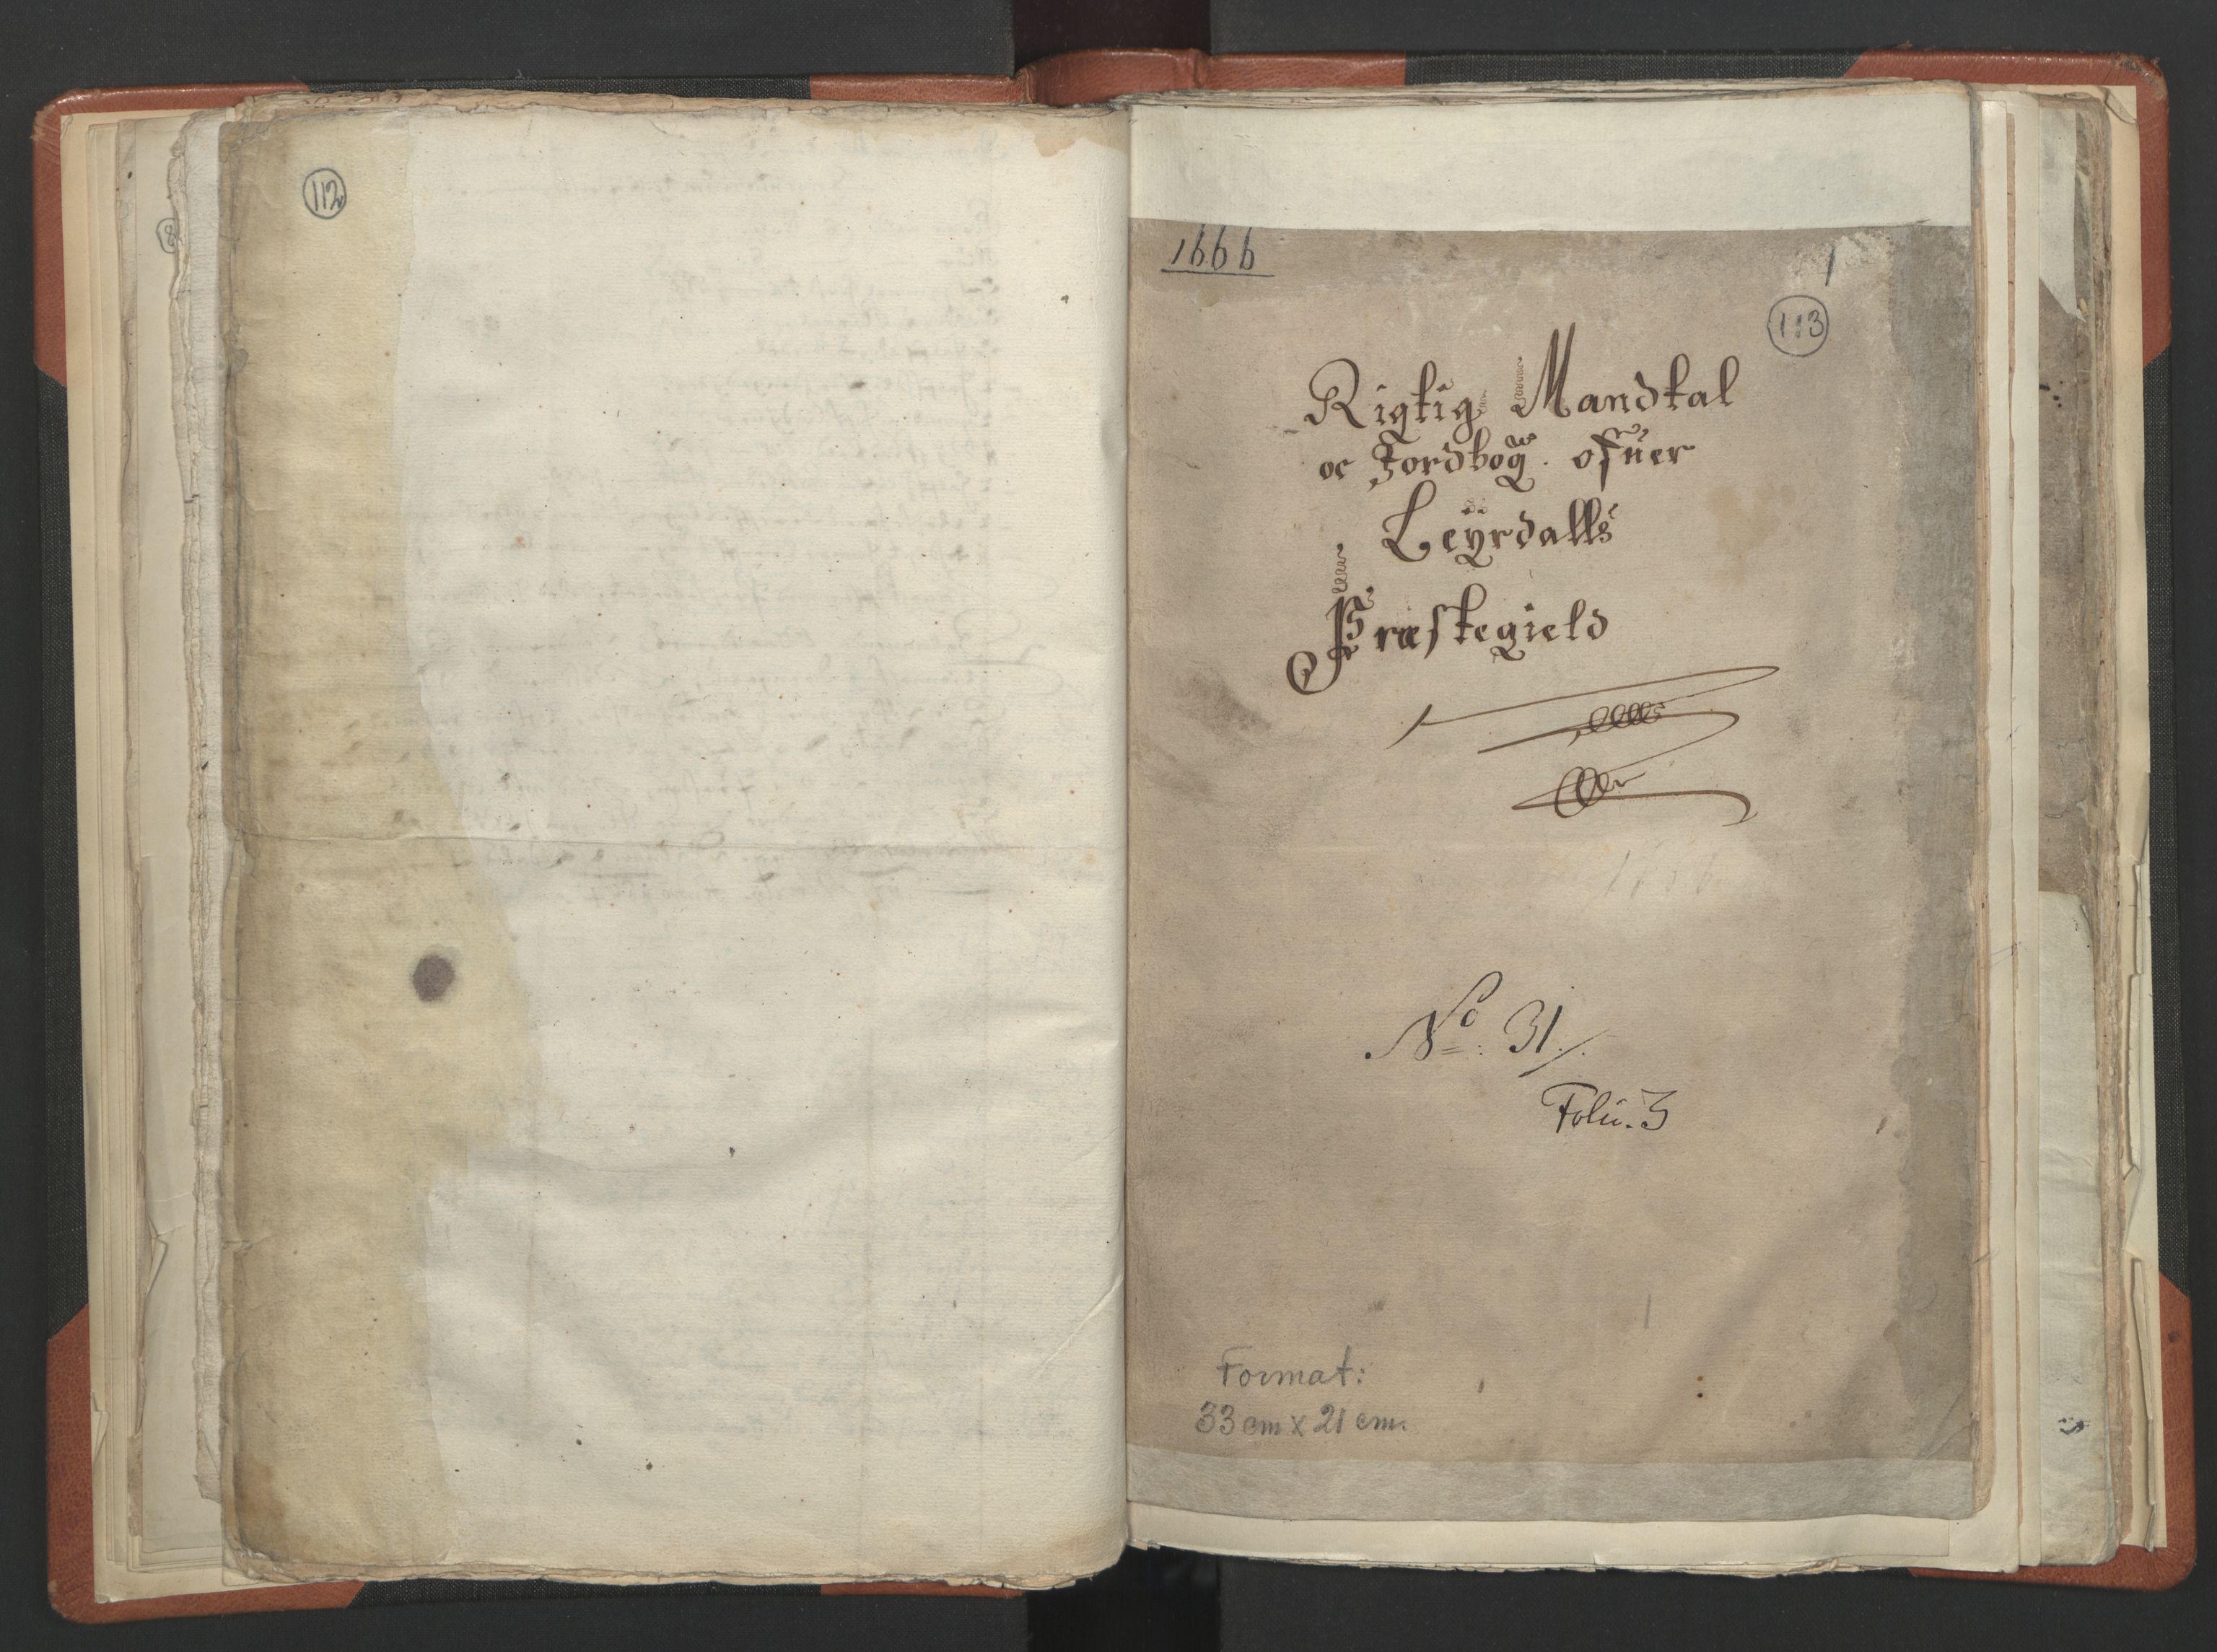 112
1666
1
113
Rigtig Mandtal
oc Jordbog ofuer
Leÿrdalls
Præstegield
No: 31./.
Folii. 3
Format:
33 cm x 21 cm.